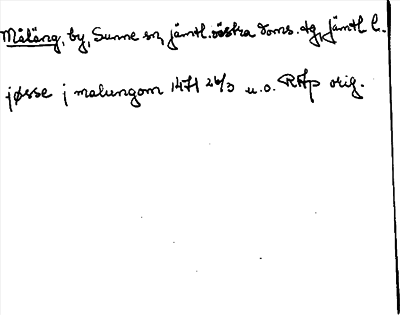 Målång, by, Sunne sn, jämtl. västra doms. tg, Jämtl l.
jøsse j malungom 1471 26/3 u.o. RAp orig.